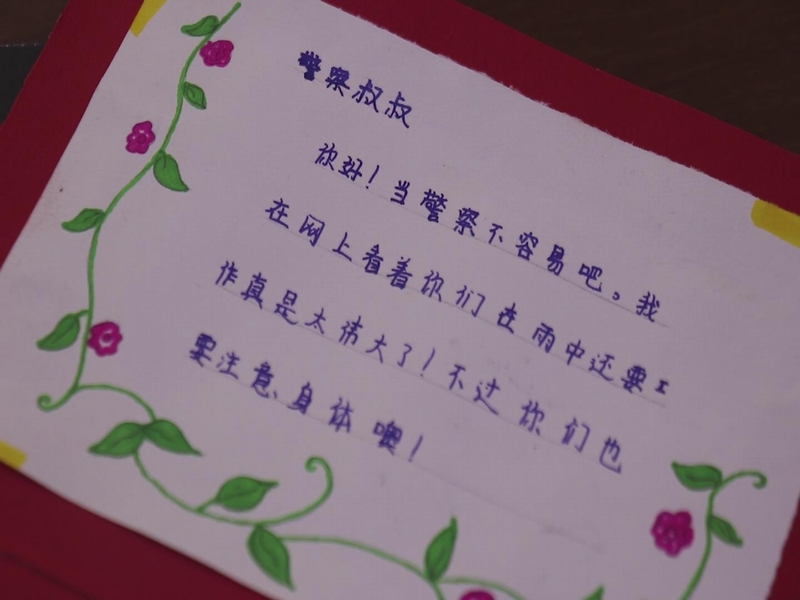 警察叔叔
你好！当警察不容易吧。我
在网上看着你们在雨中还要工
作真是太伟大了！不过你们也
要注意身体噢！